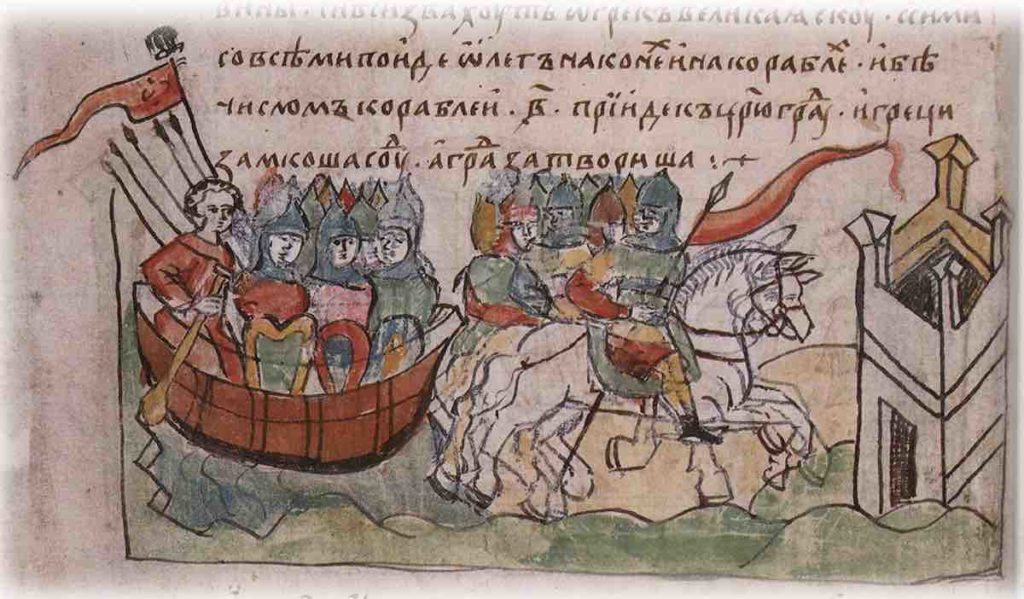 вины · си вси звахоуть ѿ грекъ великаѧ скоу · с сими
со всѣми поиде ѡлегъ на конеⷯ и на кораблеⷯ · и бѣ
числомъ кораблеи · в҃ · прїиде къ црюграⷣу · и греци
замкоша соуⷣ · а граⷣ затвориша :~